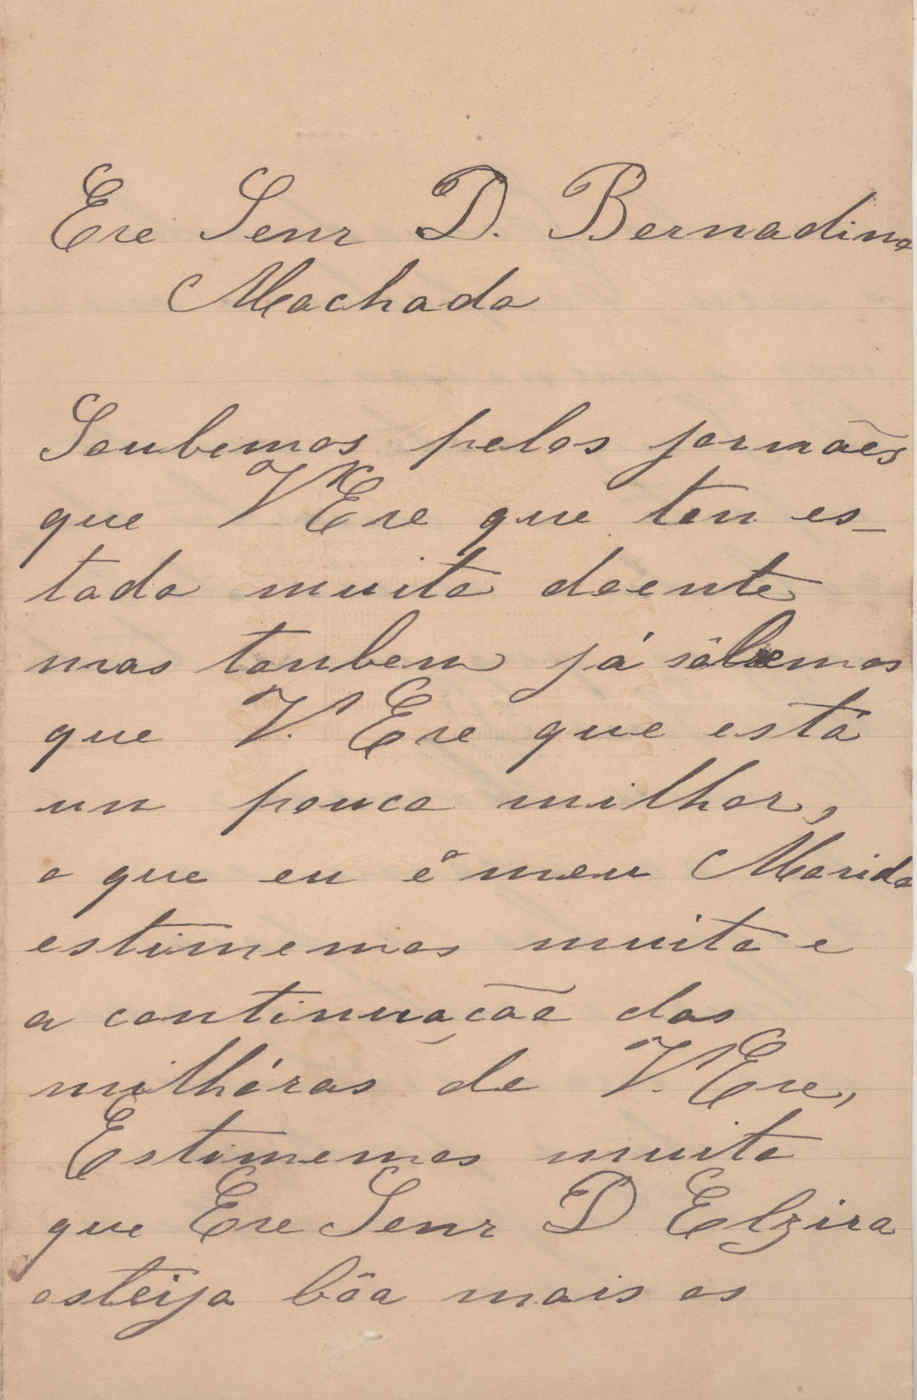 Exe Senr D. Bernadino
Machado
Soubemos pelos jornães
que V Exe que ten es-
tado muito doente
mas tanbem já sâbemos
que V. Exe que está
un pouco milhor,
o que eu e o meu Marido
estimemos muito e
a continuação das
milhóras de V. Exe,
Estimemos muito
que Exe Senr D Elzira
esteija bôa mais os